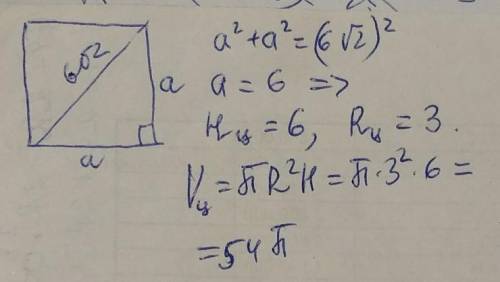 6√2
a
a
a² + a² = (6√2)²
a = 6 =>
Hц = 6, Rц = 3.
Vц = πR²H = π·3²·6 =
= 54π